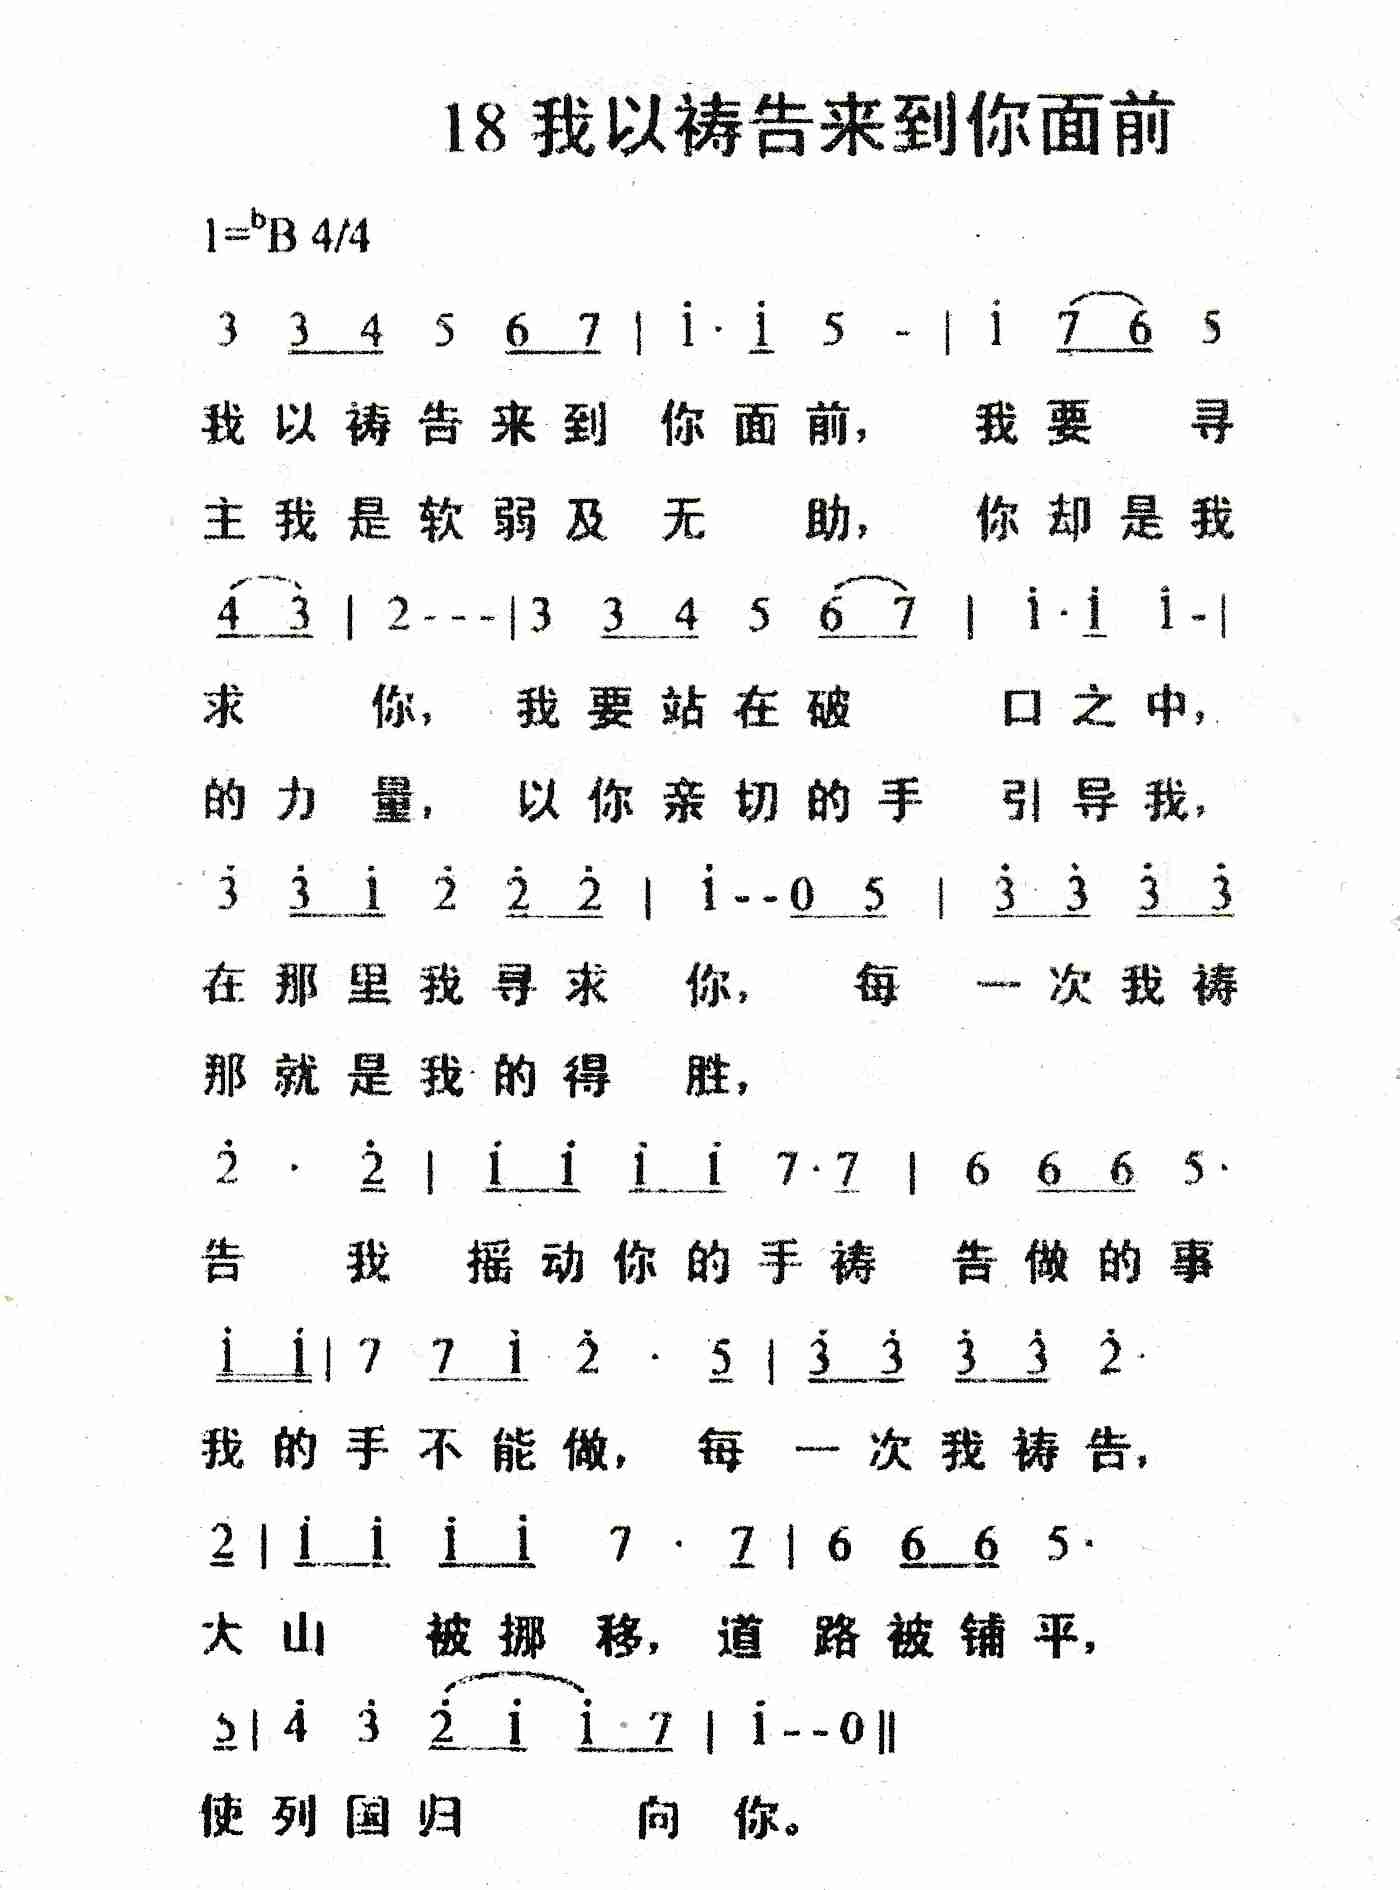 18 我以祷告来到你面前
1=ᵇB 4/4
3 3 4 5 6 7 | i · i 5 - | i 7 6 5
我以祷告来到 你面前， 我要 寻
主我是软弱及 无 助， 你却是我
4 3 | 2 - - - | 3 3 4 5 6 7 | i · i i - |
求 你， 我要站在破 口之中，
的力 量， 以你亲切的手 引导我，
3̇ 3̇ i 2̇ 2̇ 2̇ | i - - 0 5 | 3̇ 3̇ 3̇ 3̇
在那里我寻求 你， 每 一次我祷
那就是我的得 胜，
2̇ · 2̇ | i i i i 7 · 7 | 6 6 6 5 ·
告 我 摇动你的手祷 告做的事
i i | 7 7 i 2̇ · 5 | 3̇ 3̇ 3̇ 3̇ 2̇ ·
我的手不能做， 每 一次我祷告，
2 | i i i i 7 · 7 | 6 6 6 5 ·
大山 被挪 移， 道 路被铺平，
5 | 4̇ 3̇ 2̇ i i · 7 | i - - 0 ‖
使列国归 向 你。